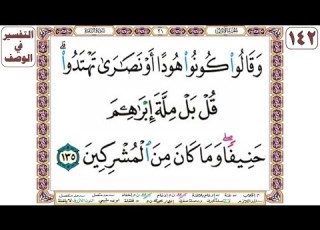 التفسير
في
الوصف
١٤٢
وَقَالُوا۟ كُونُوا۟ هُودًا أَوْ نَصَٰرَىٰ تَهْتَدُوا۟ ۗ
قُلْ بَلْ مِلَّةَ إِبْرَٰهِـۧمَ
حَنِيفًا ۖ وَمَا كَانَ مِنَ ٱلْمُشْرِكِينَ ١٣٥